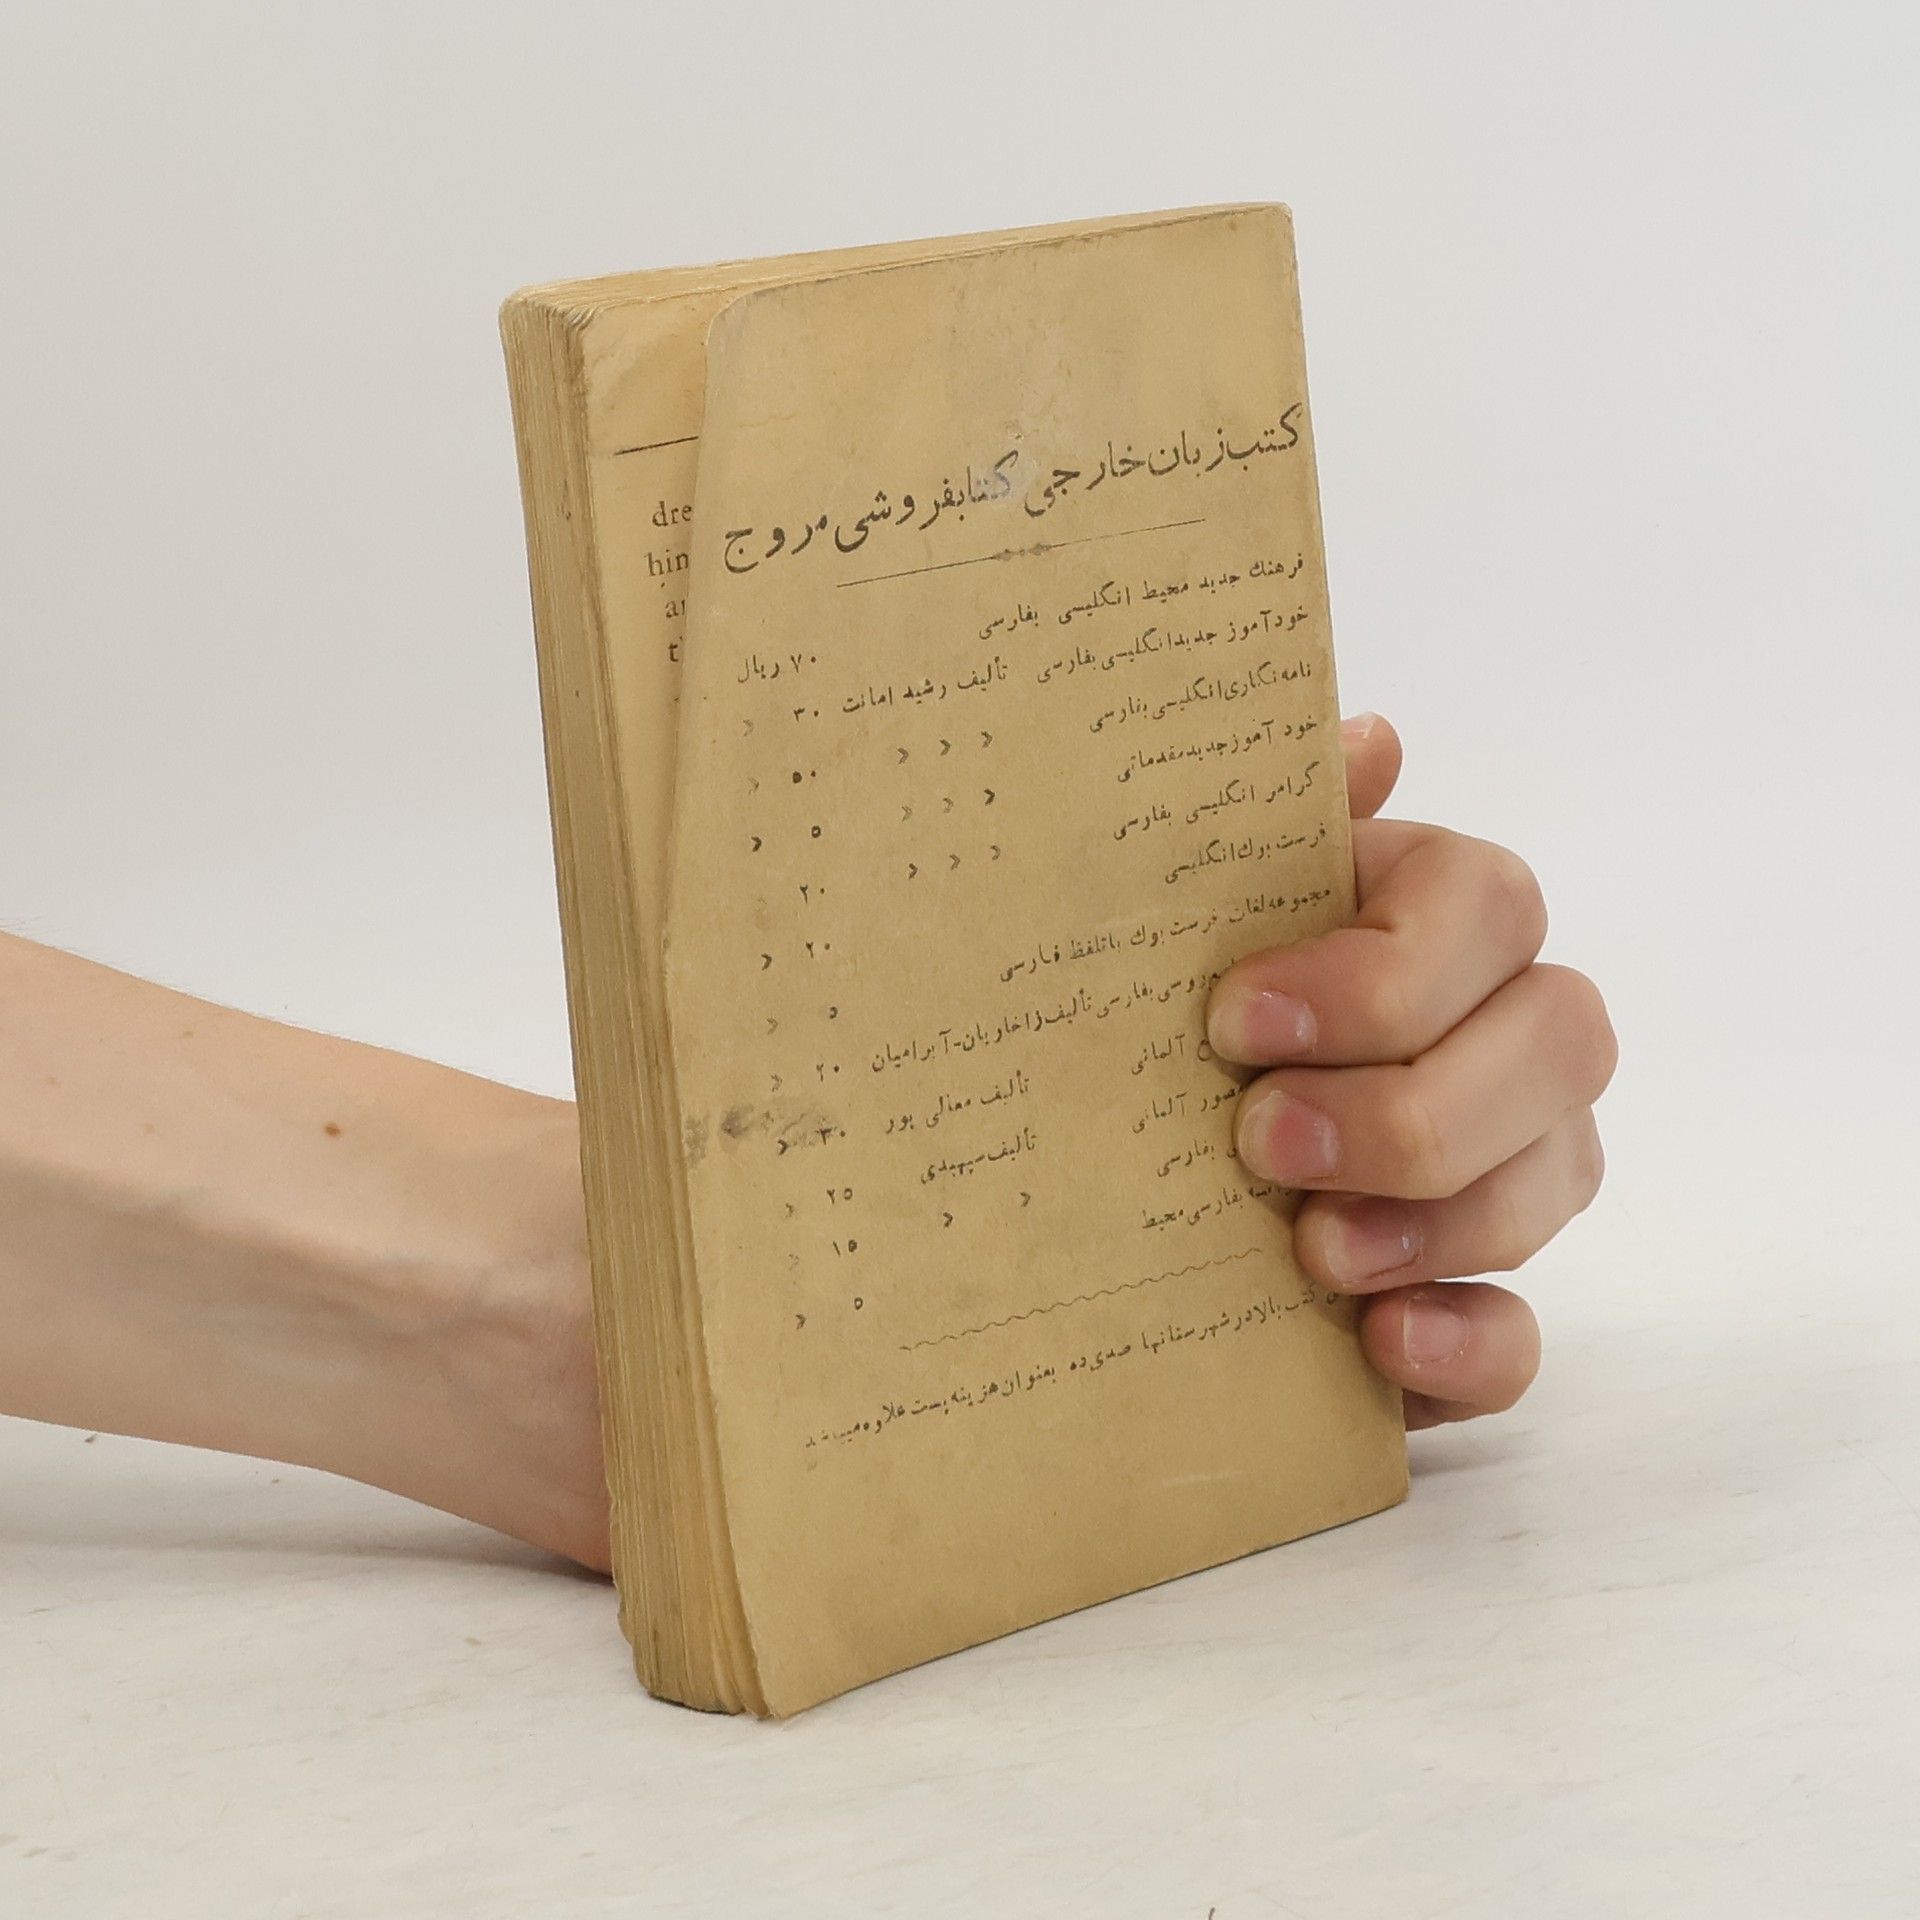 کتب زبان خارجی کتابفروشی مروج
فرهنك جدید محیط انگلیسی بفارسی ۷۰ ریال
خودآموز جدید انگلیسی بفارسی تألیف رشید امانت ۳۰ «
نامه نگاری انگلیسی بفارسی « « « ۵۰ «
خود آموز جدید مقدماتی « « « ۵ «
گرامر انگلیسی بفارسی « « « ۲۰ «
فرست بوك انگلیسی ۲۰ «
مجموعه لغات فرست بوك باتلفظ فارسی ۵ «
روسی بفارسی تألیف زاخاریان-آبرامیان ۲۰ «
آلمانی تألیف معالی پور ۳۰ «
مصور آلمانی تألیف سپهبدی ۲۵ «
بفارسی « « ۱۵ «
بفارسی محیط ۵ «
کتب بالا در شهرستانها صدی ده بعنوان هزینه پست علاوه میباشد
dre
hin